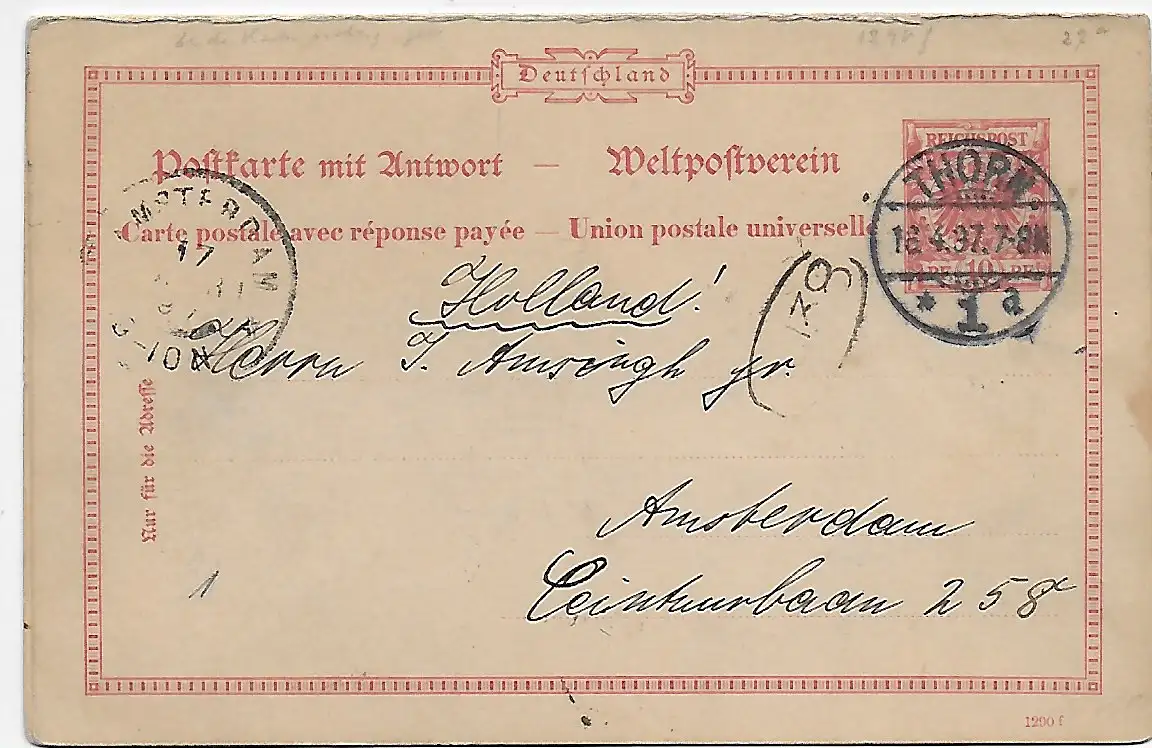 Deutschland
Postkarte mit Antwort — Weltpostverein
Carte postale avec réponse payée — Union postale universelle
REICHSPOST
10
THORN
16.4.97.7-8N
* 1 a
AMSTERDAM
17
Holland!
Herrn J. Amsingh jr.
139
Amsterdam
Ceintuurbaan 258
Nur für die Adresse
1
1290 f